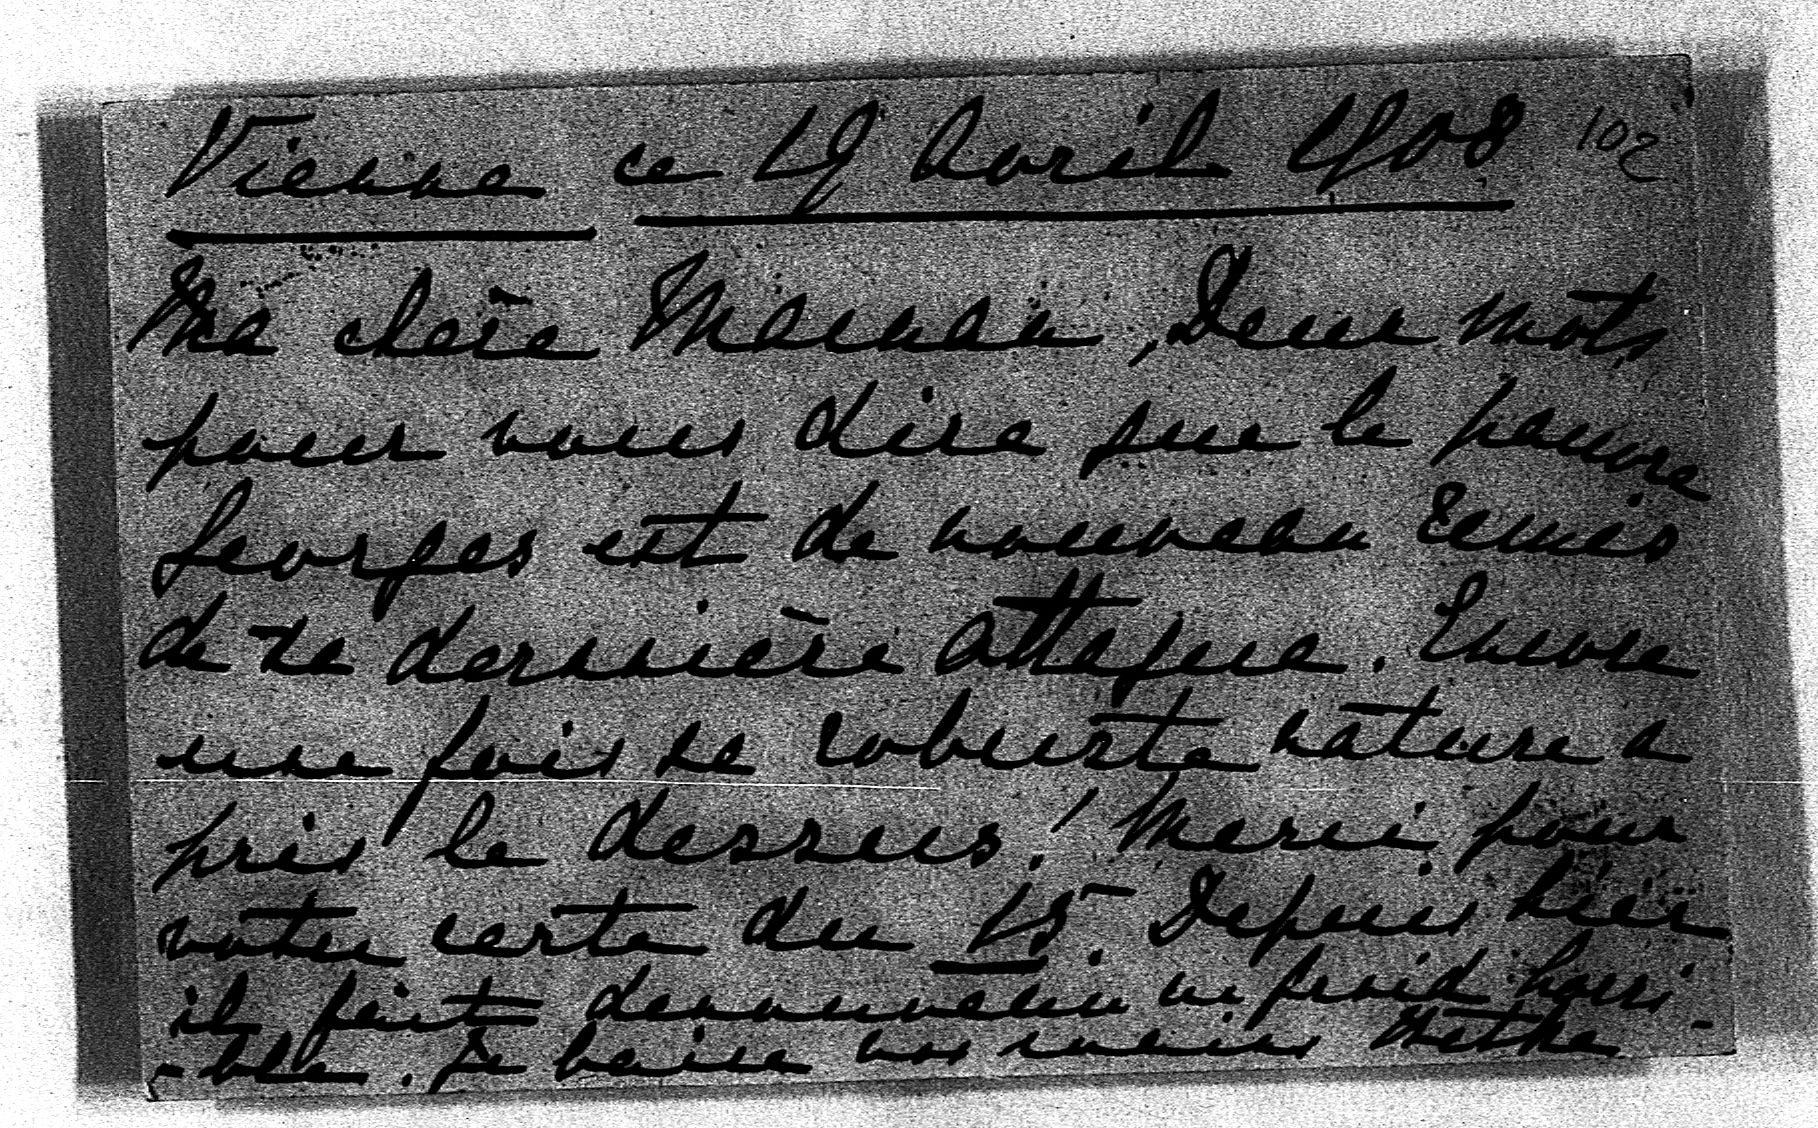 Vienne ce 19 Avril 1908 102
Ma chère Maman, Deux mots
pour vous dire que le pauvre
Georges est de nouveau remis
de sa dernière attaque. Encore
une fois sa robuste nature a
pris le dessus! Merci pour
votre carte du 15. Depuis hier
il fait de nouveau un froid horri-
-ble. Je baise vos mains